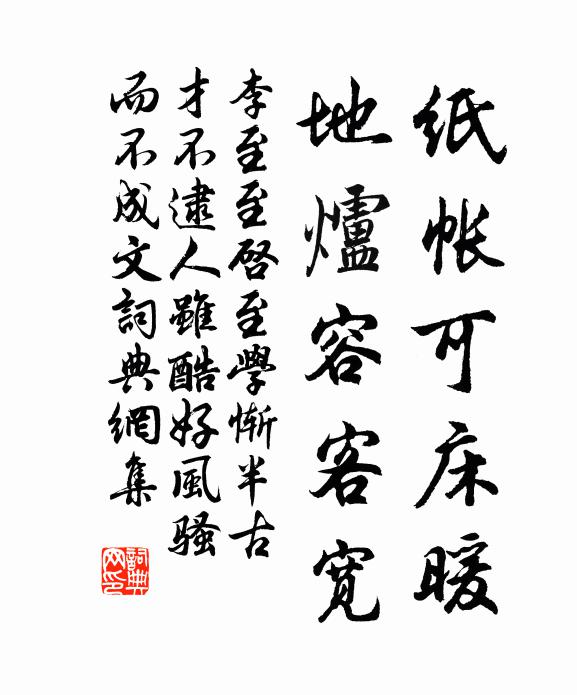 纸帐可床暖
地爐容客寛
李至至啓至學惭半古
才不逮人雖酷好風骚
而不成文詞典網集
詞典
网印